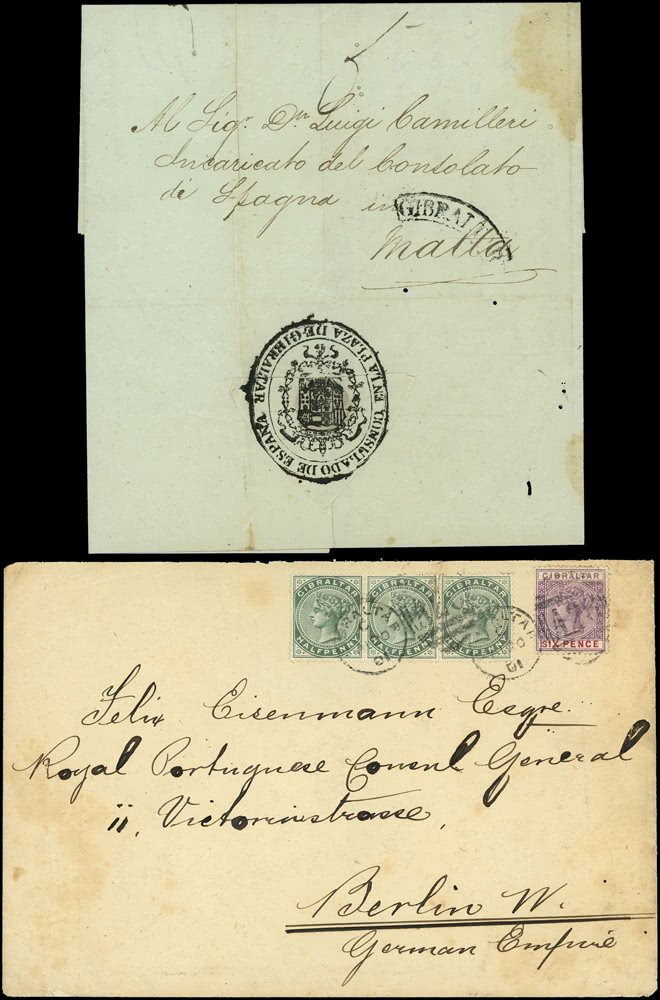 5
Al Sigr. Dn Luigi Camilleri
Incaricato del Consolato
de Spagna in
GIBRALTAR
Malta
CONSULADO DE ESPAÑA
EN LA PLAZA DE GIBRALTAR
GIBRALTAR GIBRALTAR GIBRALTAR GIBRALTAR
HALFPENNY HALFPENNY HALFPENNY SIX PENCE
Felix Eisenmann Esqre.
Royal Portuguese Consul General
ii, Victoriastrasse,
Berlin W.
German Empire